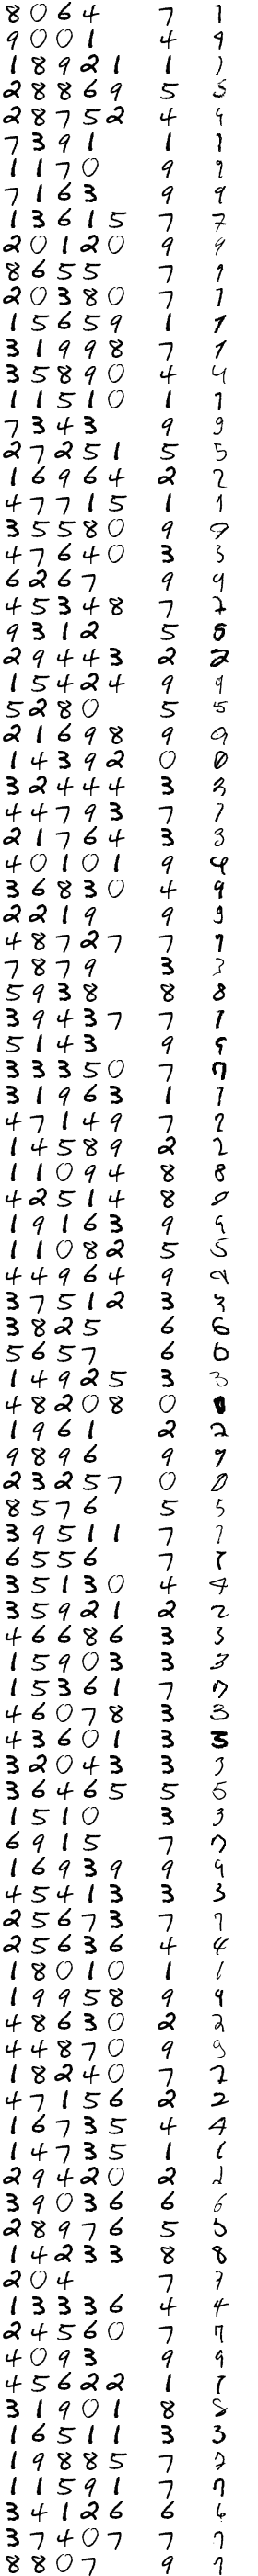 8064 7 1
9001 4 9
18921 1 1
28869 5 5
28752 4 4
7391 1 1
1170 9 9
7163 9 9
13615 7 7
20120 9 9
8655 7 1
20380 7 1
15659 1 1
31998 7 1
35890 4 4
11510 1 1
7343 9 9
27251 5 5
16964 2 2
47715 1 1
35580 9 9
47640 3 3
6267 9 9
45348 7 2
9312 5 5
29443 2 2
15424 9 9
5280 5 5
21698 9 9
14392 0 0
32444 3 3
44793 7 7
21764 3 3
40101 9 4
36830 4 9
2219 9 9
48727 7 7
7879 3 3
5938 8 8
39437 7 7
5143 9 9
33350 7 7
31963 1 1
47149 7 7
14589 2 2
11094 8 8
42514 8 8
19163 9 9
11082 5 5
44964 9 9
37512 3 3
3825 6 6
5657 6 6
14925 3 3
48208 0 0
1961 2 2
9896 9 9
23257 0 0
8576 5 5
39511 7 7
6556 7 7
35130 4 4
35921 2 2
46686 3 3
15903 3 3
15361 7 7
46078 3 3
43601 3 3
32043 3 3
36465 5 5
1510 3 3
6915 7 7
16939 9 9
45413 3 3
25673 7 7
25636 4 4
18010 1 1
19958 9 9
48630 2 2
44870 9 9
18240 7 2
47156 2 2
16735 4 4
14735 1 1
29420 2 2
39036 6 6
28976 5 5
14233 8 8
204 7 7
13336 4 4
24560 7 7
4093 9 9
45622 1 1
31901 8 8
16511 3 3
19885 7 7
11591 7 7
34126 6 6
37407 7 7
8807 9 9